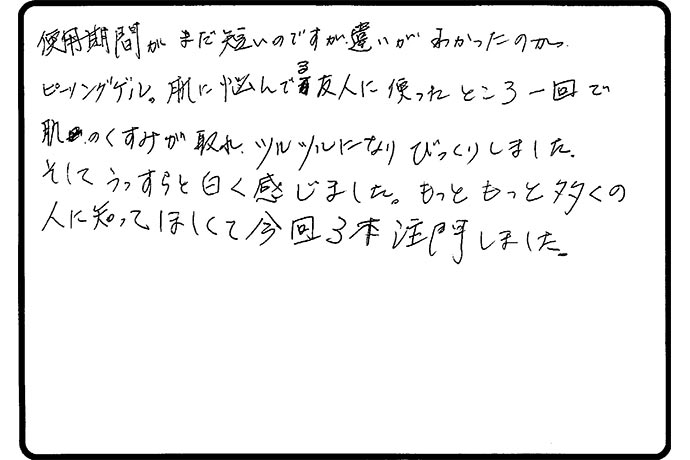 使用期間がまだ短いのですが、違いがわかったのが、
ピーリングゲル。肌に悩んでる友人に使ったところ一回で
肌のくすみが取れ、ツルツルになりびっくりしました。
そしてうっすらと白く感じました。もっともっと多くの
人に知ってほしくて今回3本注門しました。